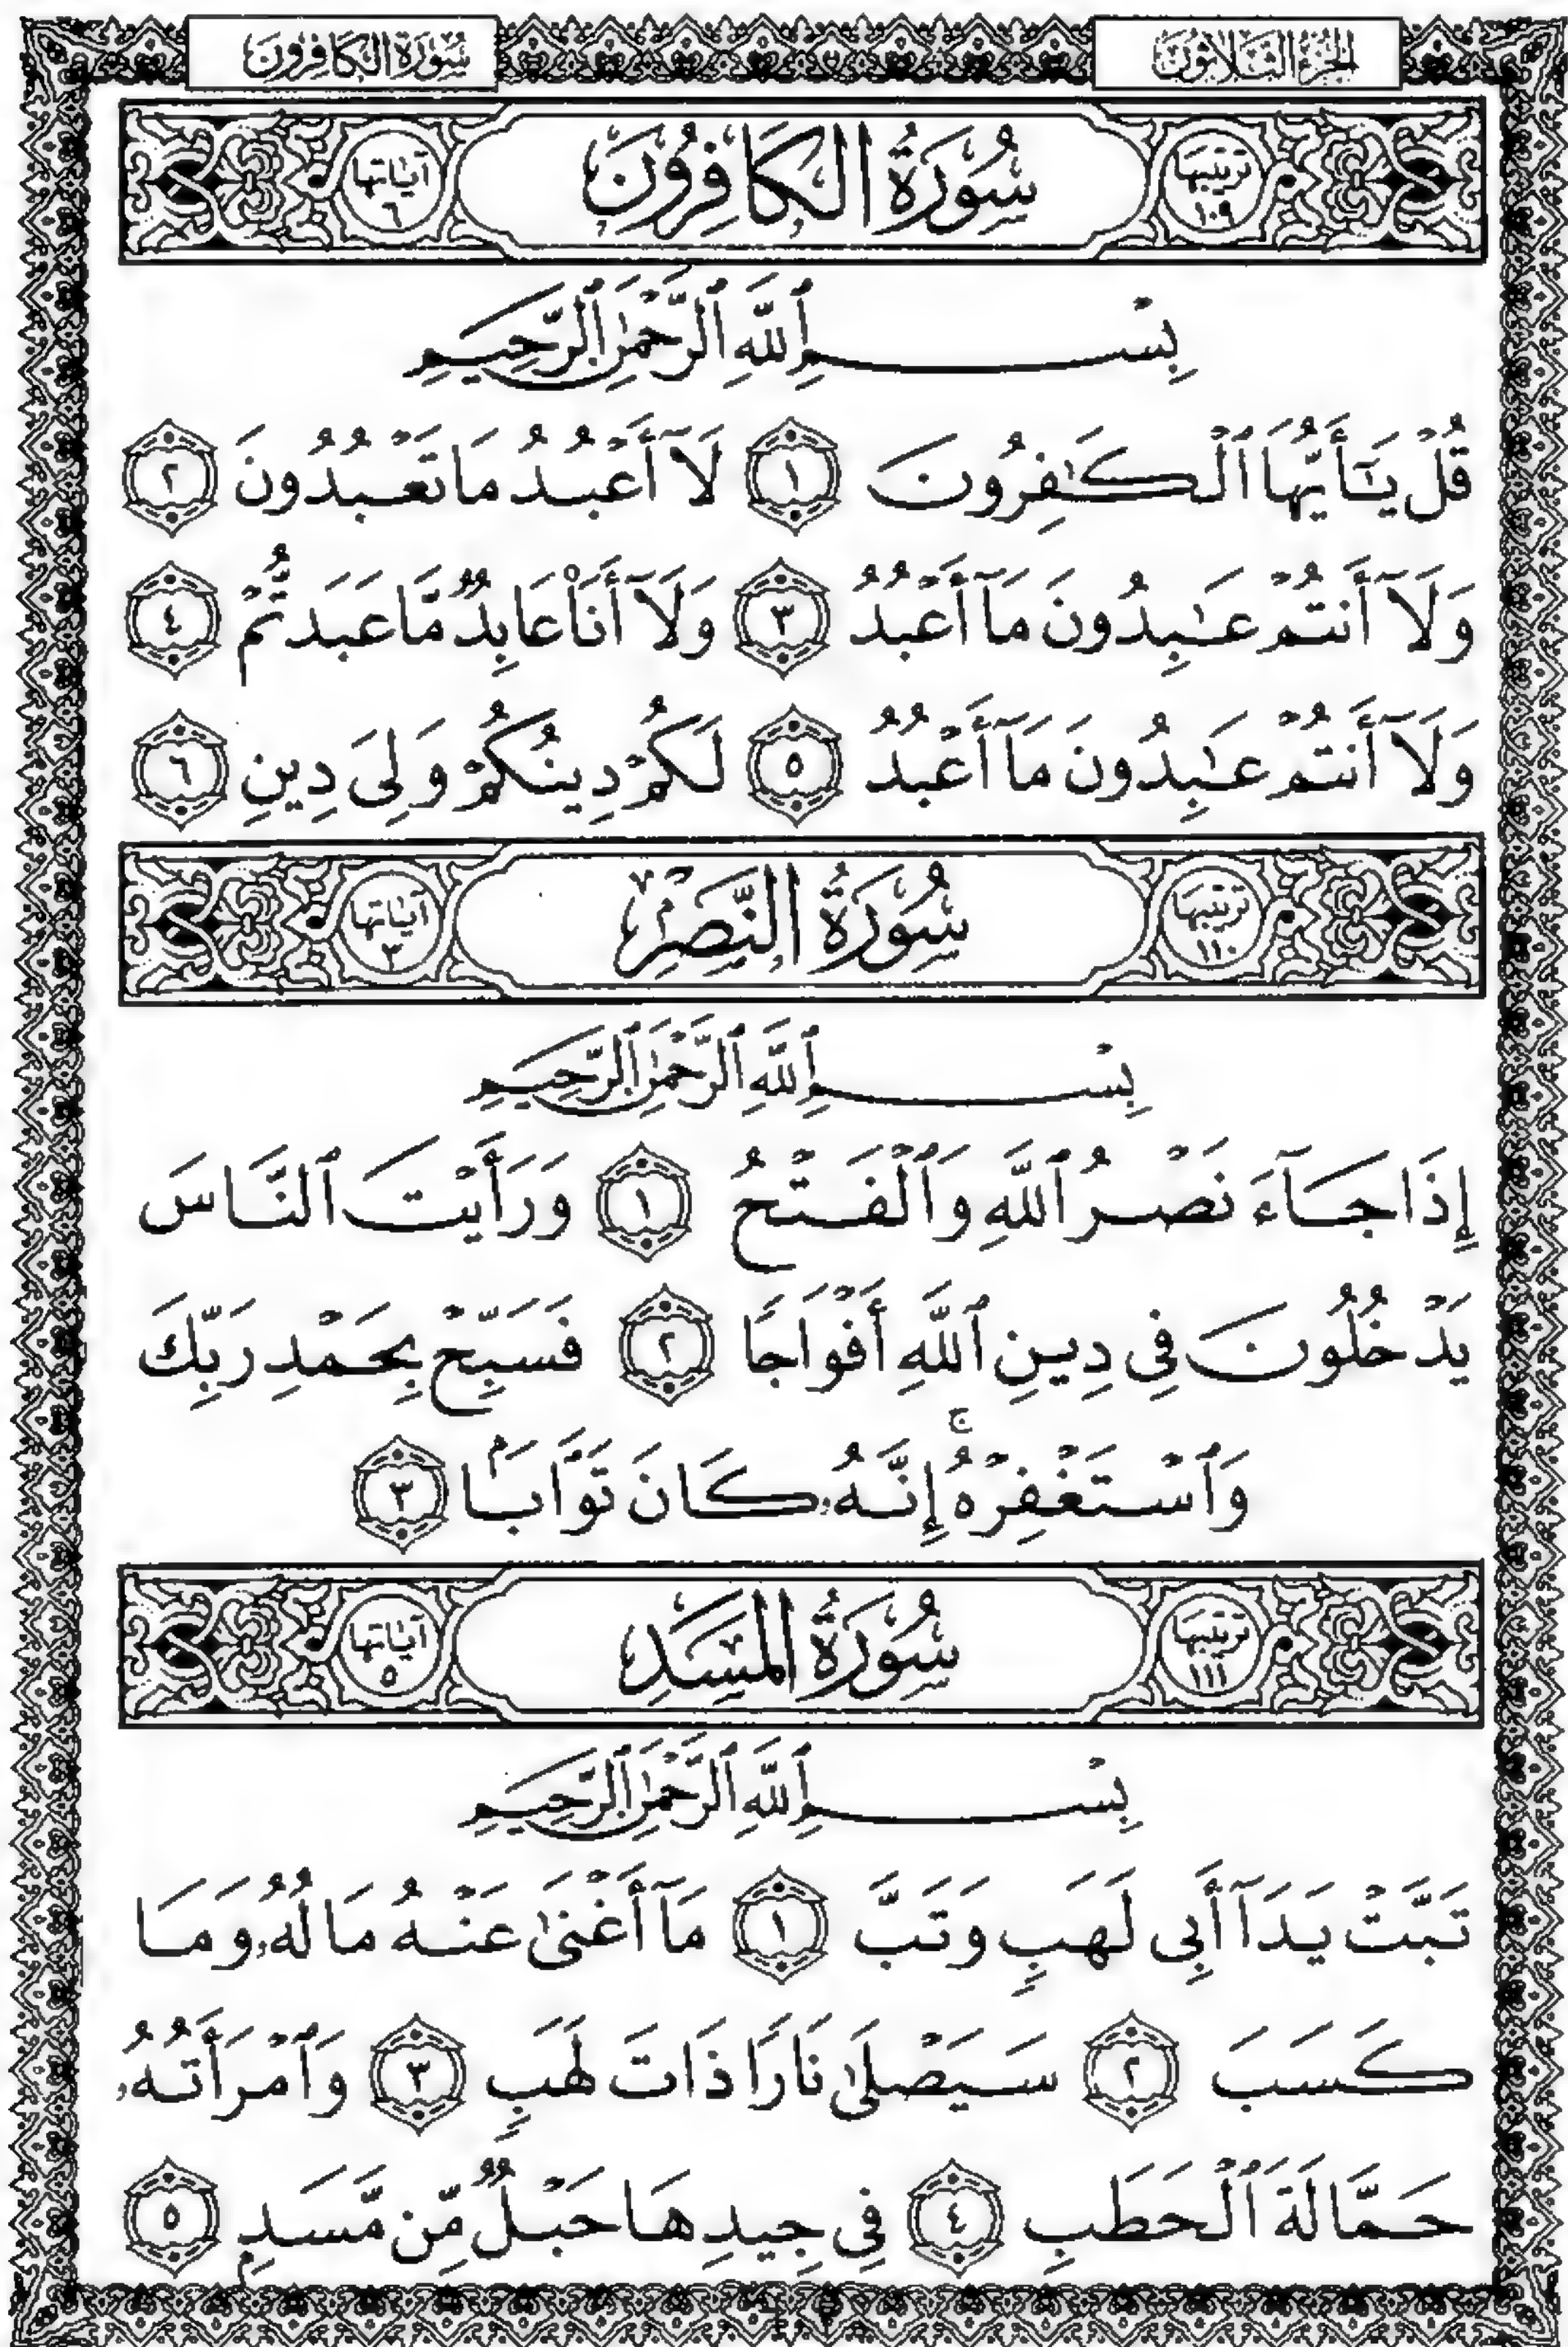 الجزء الثلاثون
سُورَةُ الكَافِرُونَ
ترتيبها ١٠٩
سُورَةُ الكَافِرُونَ
آياتها ٦
بِسْمِ ٱللَّهِ ٱلرَّحْمَٰنِ ٱلرَّحِيمِ
قُلْ يَٰٓأَيُّهَا ٱلْكَٰفِرُونَ ١ لَآ أَعْبُدُ مَا تَعْبُدُونَ ٢
وَلَآ أَنتُمْ عَٰبِدُونَ مَآ أَعْبُدُ ٣ وَلَآ أَنَا۠ عَابِدٌ مَّا عَبَدتُّمْ ٤
وَلَآ أَنتُمْ عَٰبِدُونَ مَآ أَعْبُدُ ٥ لَكُمْ دِينُكُمْ وَلِىَ دِينِ ٦
ترتيبها ١١٠
سُورَةُ النَّصْرِ
آياتها ٣
بِسْمِ ٱللَّهِ ٱلرَّحْمَٰنِ ٱلرَّحِيمِ
إِذَا جَآءَ نَصْرُ ٱللَّهِ وَٱلْفَتْحُ ١ وَرَأَيْتَ ٱلنَّاسَ
يَدْخُلُونَ فِى دِينِ ٱللَّهِ أَفْوَاجًا ٢ فَسَبِّحْ بِحَمْدِ رَبِّكَ
وَٱسْتَغْفِرْهُ ۚ إِنَّهُۥ كَانَ تَوَّابًۢا ٣
ترتيبها ١١١
سُورَةُ المَسَدِ
آياتها ٥
بِسْمِ ٱللَّهِ ٱلرَّحْمَٰنِ ٱلرَّحِيمِ
تَبَّتْ يَدَآ أَبِى لَهَبٍ وَتَبَّ ١ مَآ أَغْنَىٰ عَنْهُ مَالُهُۥ وَمَا
كَسَبَ ٢ سَيَصْلَىٰ نَارًا ذَاتَ لَهَبٍ ٣ وَٱمْرَأَتُهُۥ
حَمَّالَةَ ٱلْحَطَبِ ٤ فِى جِيدِهَا حَبْلٌ مِّن مَّسَدٍۭ ٥